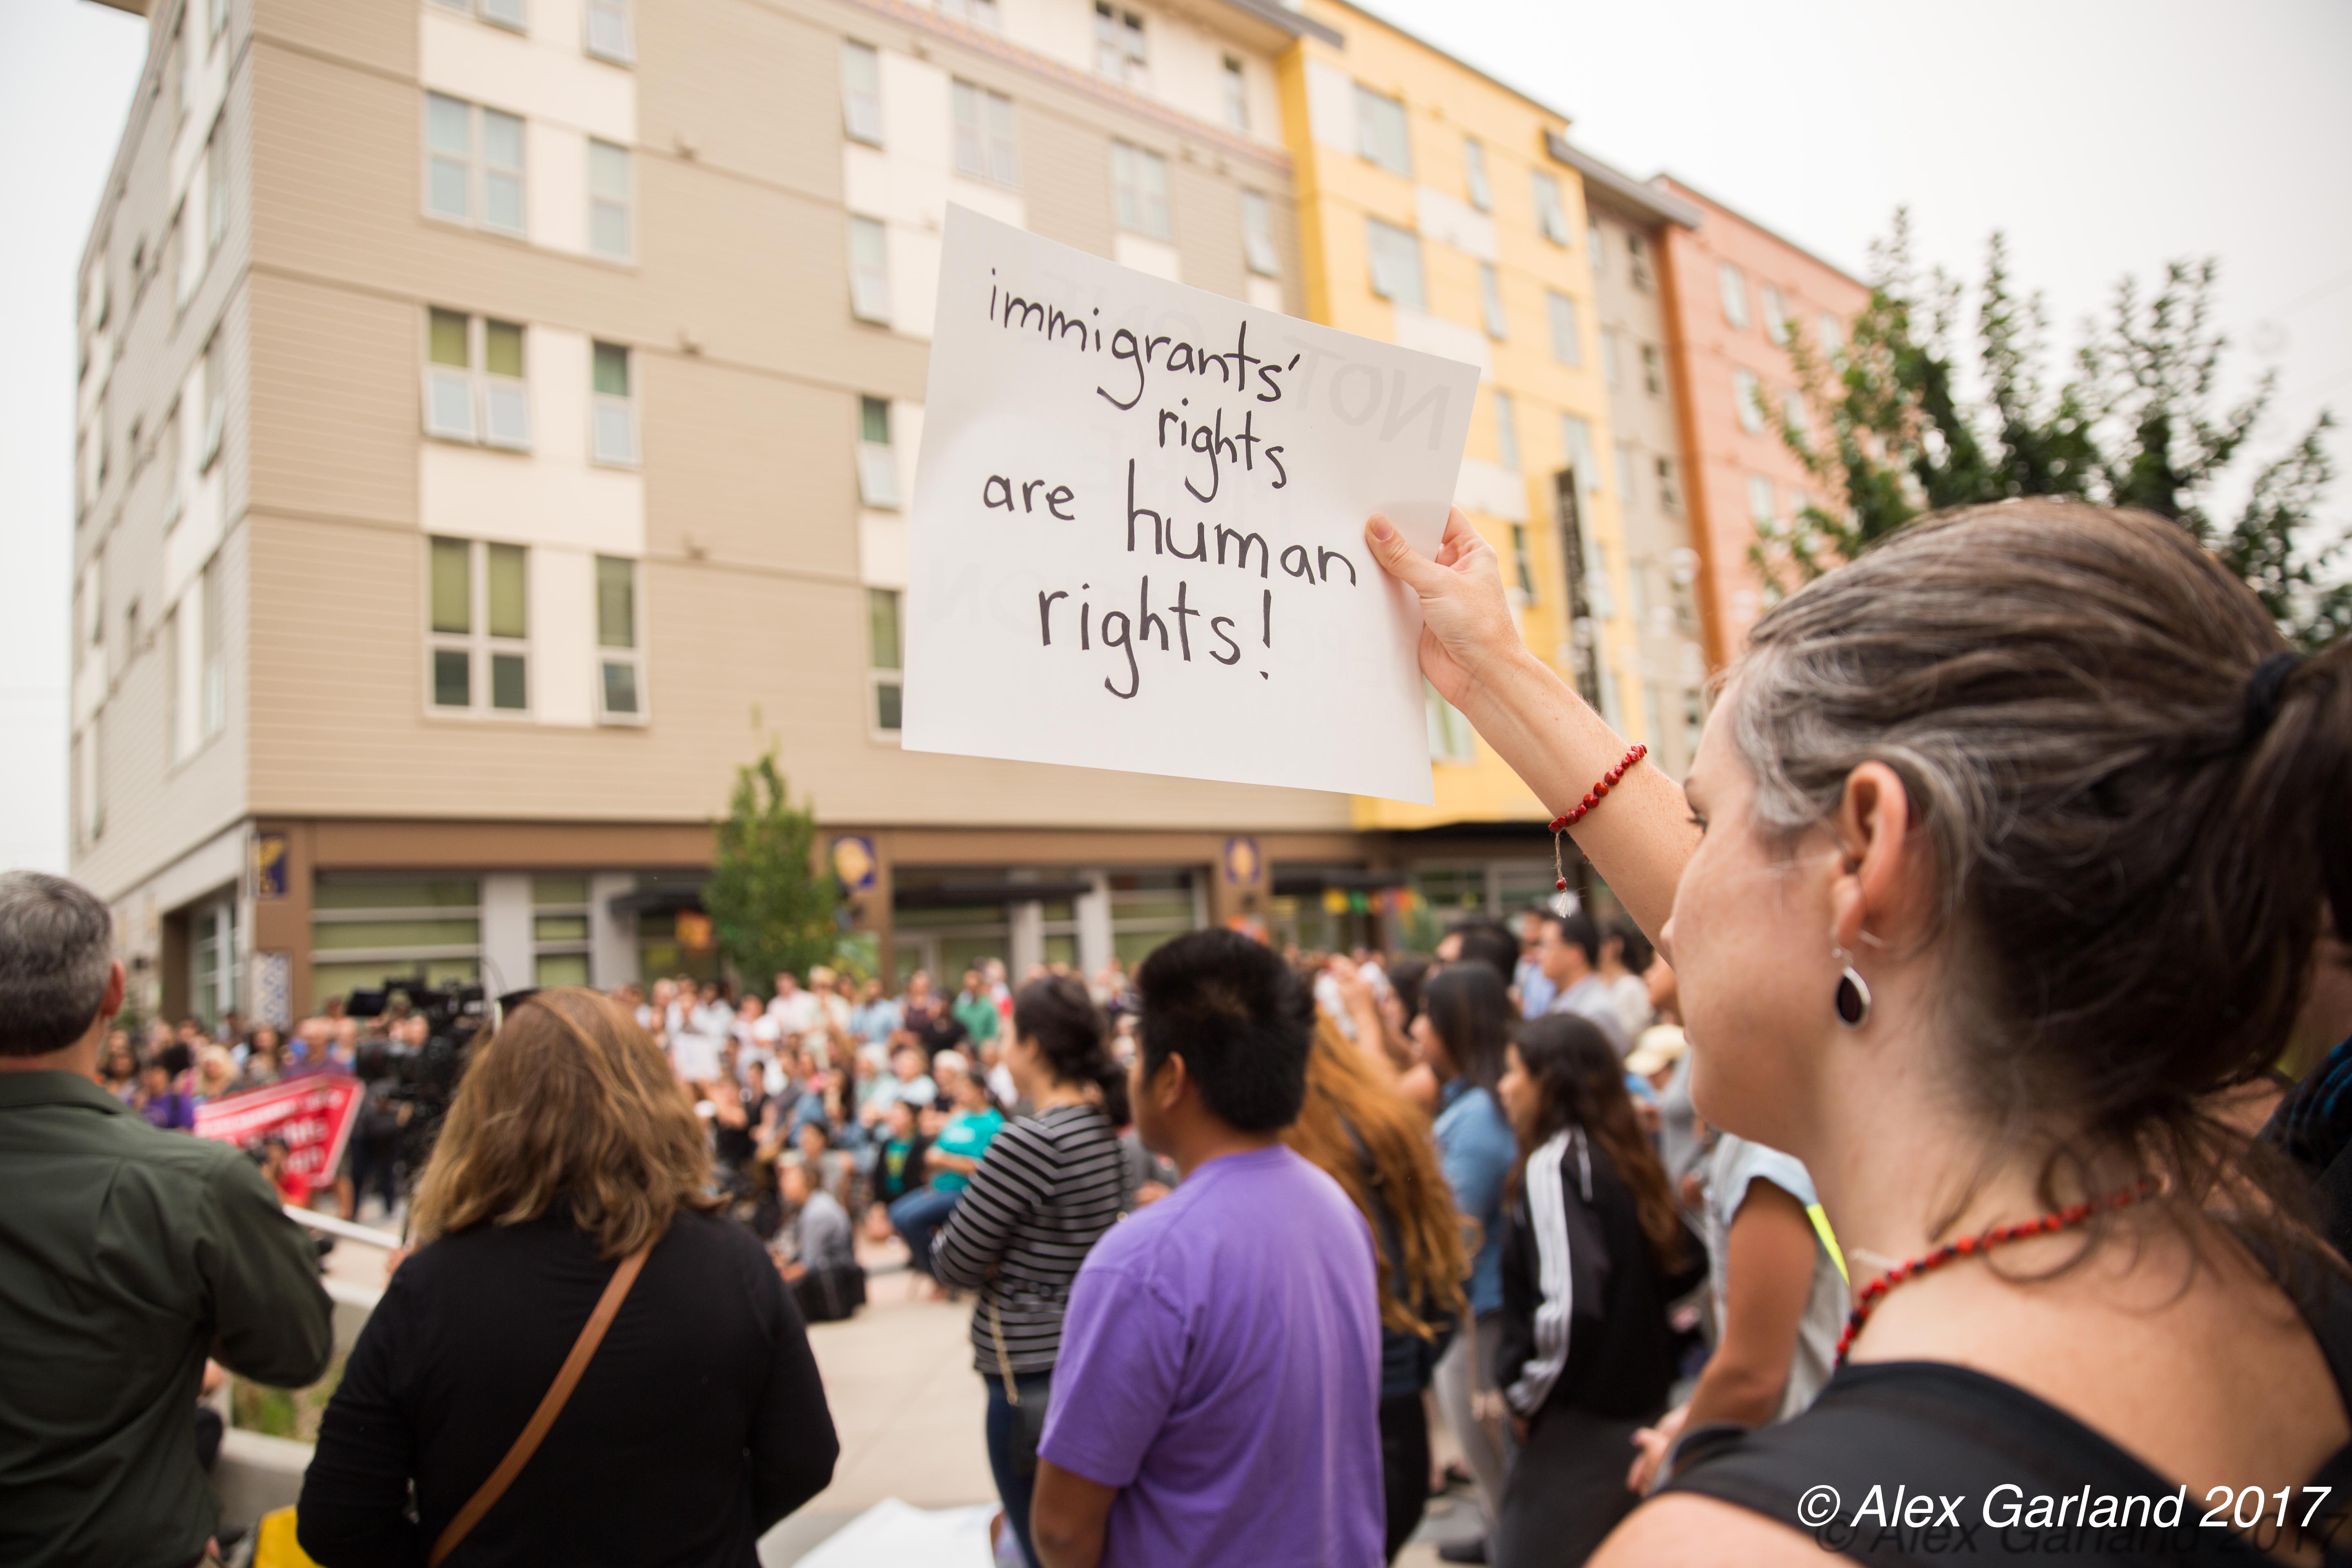 immigrants'
rights
are human
rights!
NOT
© Alex Garland 2017